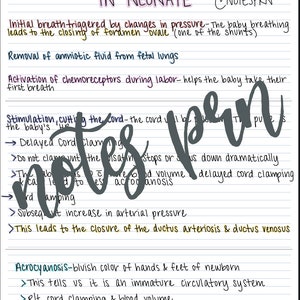 IN NEONATE
Initial breath triggered by changes in pressure- The baby breathing
leads to the closing of foramen ovale (one of the shunts)
Removal of amniotic fluid from fetal lungs
Activation of chemoreceptors during labor- helps the baby take their
first breath
Stimulation, cutting the cord- the cord will be
the baby's
→ Delayed Cord Clamping
> Do not clamp until the pulsating stops or slows down dramatically
> The baby blood volume delayed cord clamping
can lead to acrocyanosis
clamping
> Subsequent increase in arterial pressure
> This leads to the closure of the ductus arteriosis & ductus venosus
Acrocyanosis- bluish color of hands & feet of newborn
> This tells us it is an immature circulatory system
cord clamping & blood volume
notes prn